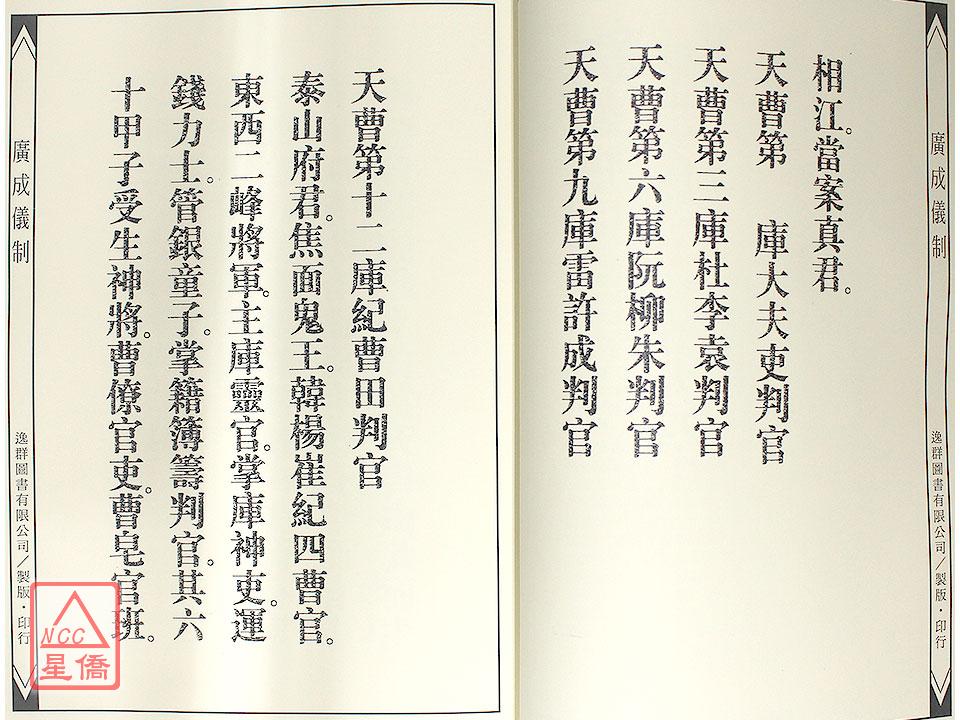 廣成儀制
逸群圖書有限公司／製版・印行
相江。當案真君。
天曹第　庫大夫吏判官
天曹第三庫杜李袁判官
天曹第六庫阮柳朱判官
天曹第九庫雷許成判官
天曹第十二庫紀曹田判官
泰山府君。焦面鬼王。韓楊崔紀四曹官。
東西二峰將軍。主庫靈官。掌庫神吏。運
錢力士。管銀童子。掌籍簿籌判官。其六
十甲子受生神將。曹僚官吏。曹皂官班。
廣成儀制
逸群圖書有限公司／製版・印行
NCC
星僑